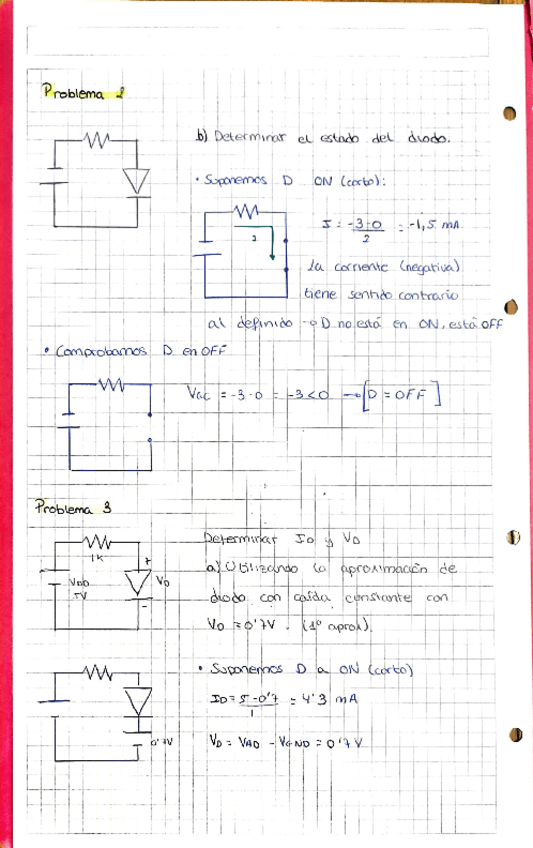 Problema 2
b) Determinar el estado del diodo.
• Suponemos D ON (corto):
I = -3-0 / 2 = -1,5 mA
I
la corriente (negativa)
tiene sentido contrario
al definido → D no está en ON, está OFF
• Comprobamos D en OFF
Vac = -3-0 = -3 < 0 → [D = OFF]
Problema 3
Determinar ID y VD
1K
+
VDD
5V
VD
-
a) Utilizando la aproximación de
diodo con caída constante con
VD = 0'7V. (1º aprox).
• Suponemos D a ON (corto)
ID = 5-0'7 / 1 = 4'3 mA
0'7V
VD = VAD - VGND = 0'7 V